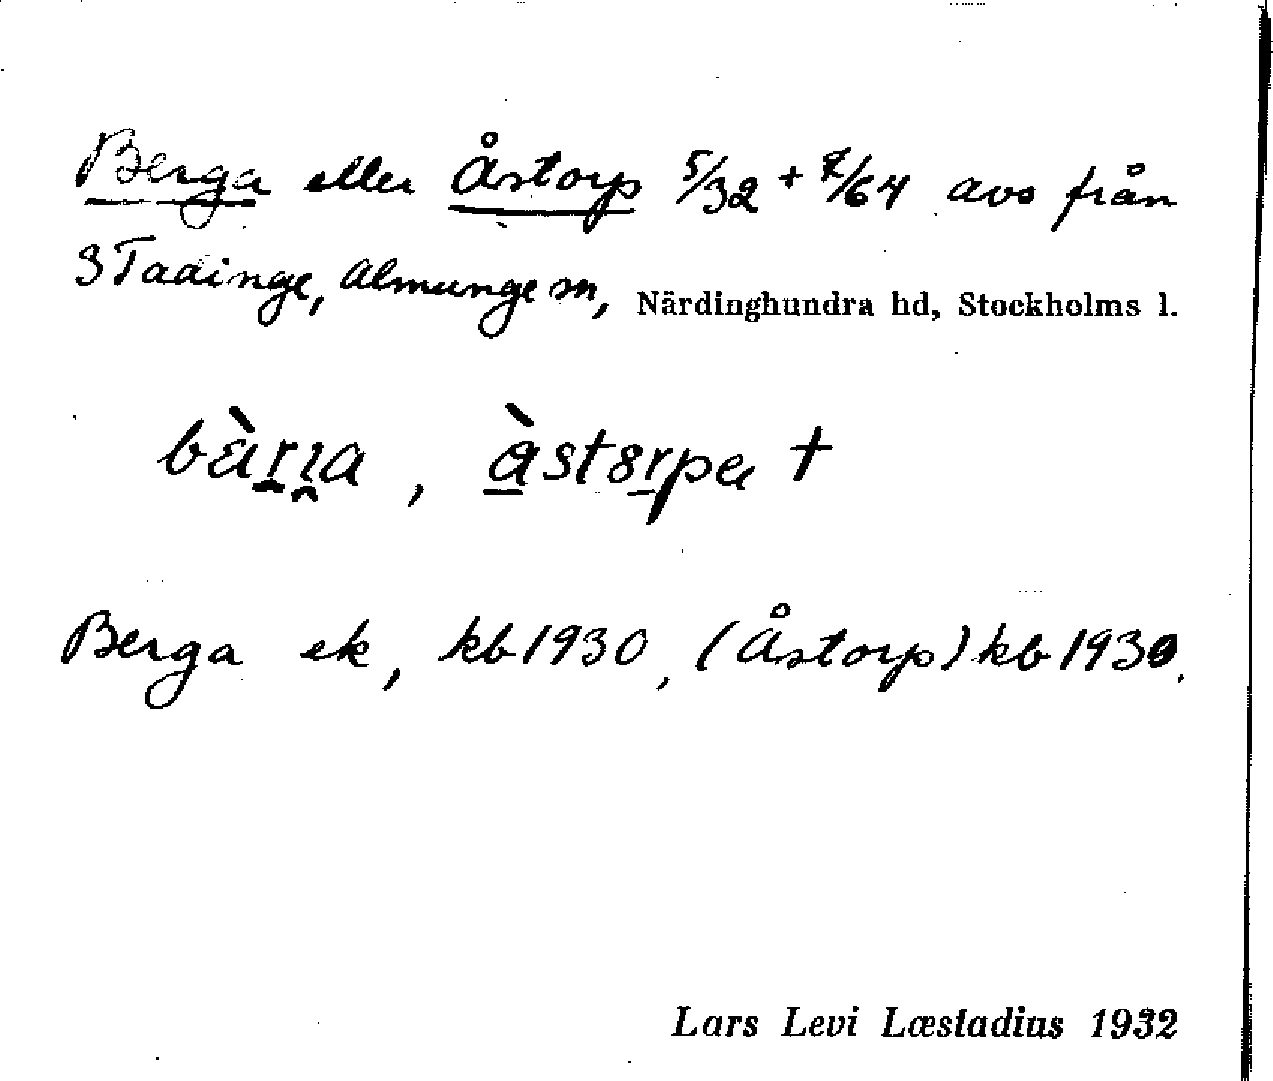 Berga eller Åstorp 5/32 + 7/64 avs från
3 Tadinge, Almunge sn, Närdinghundra hd, Stockholms l.
bàrıa, àstɤrpa †
Berga ek, kb 1930, (Åstorp) kb 1930.
Lars Levi Læstadius 1932